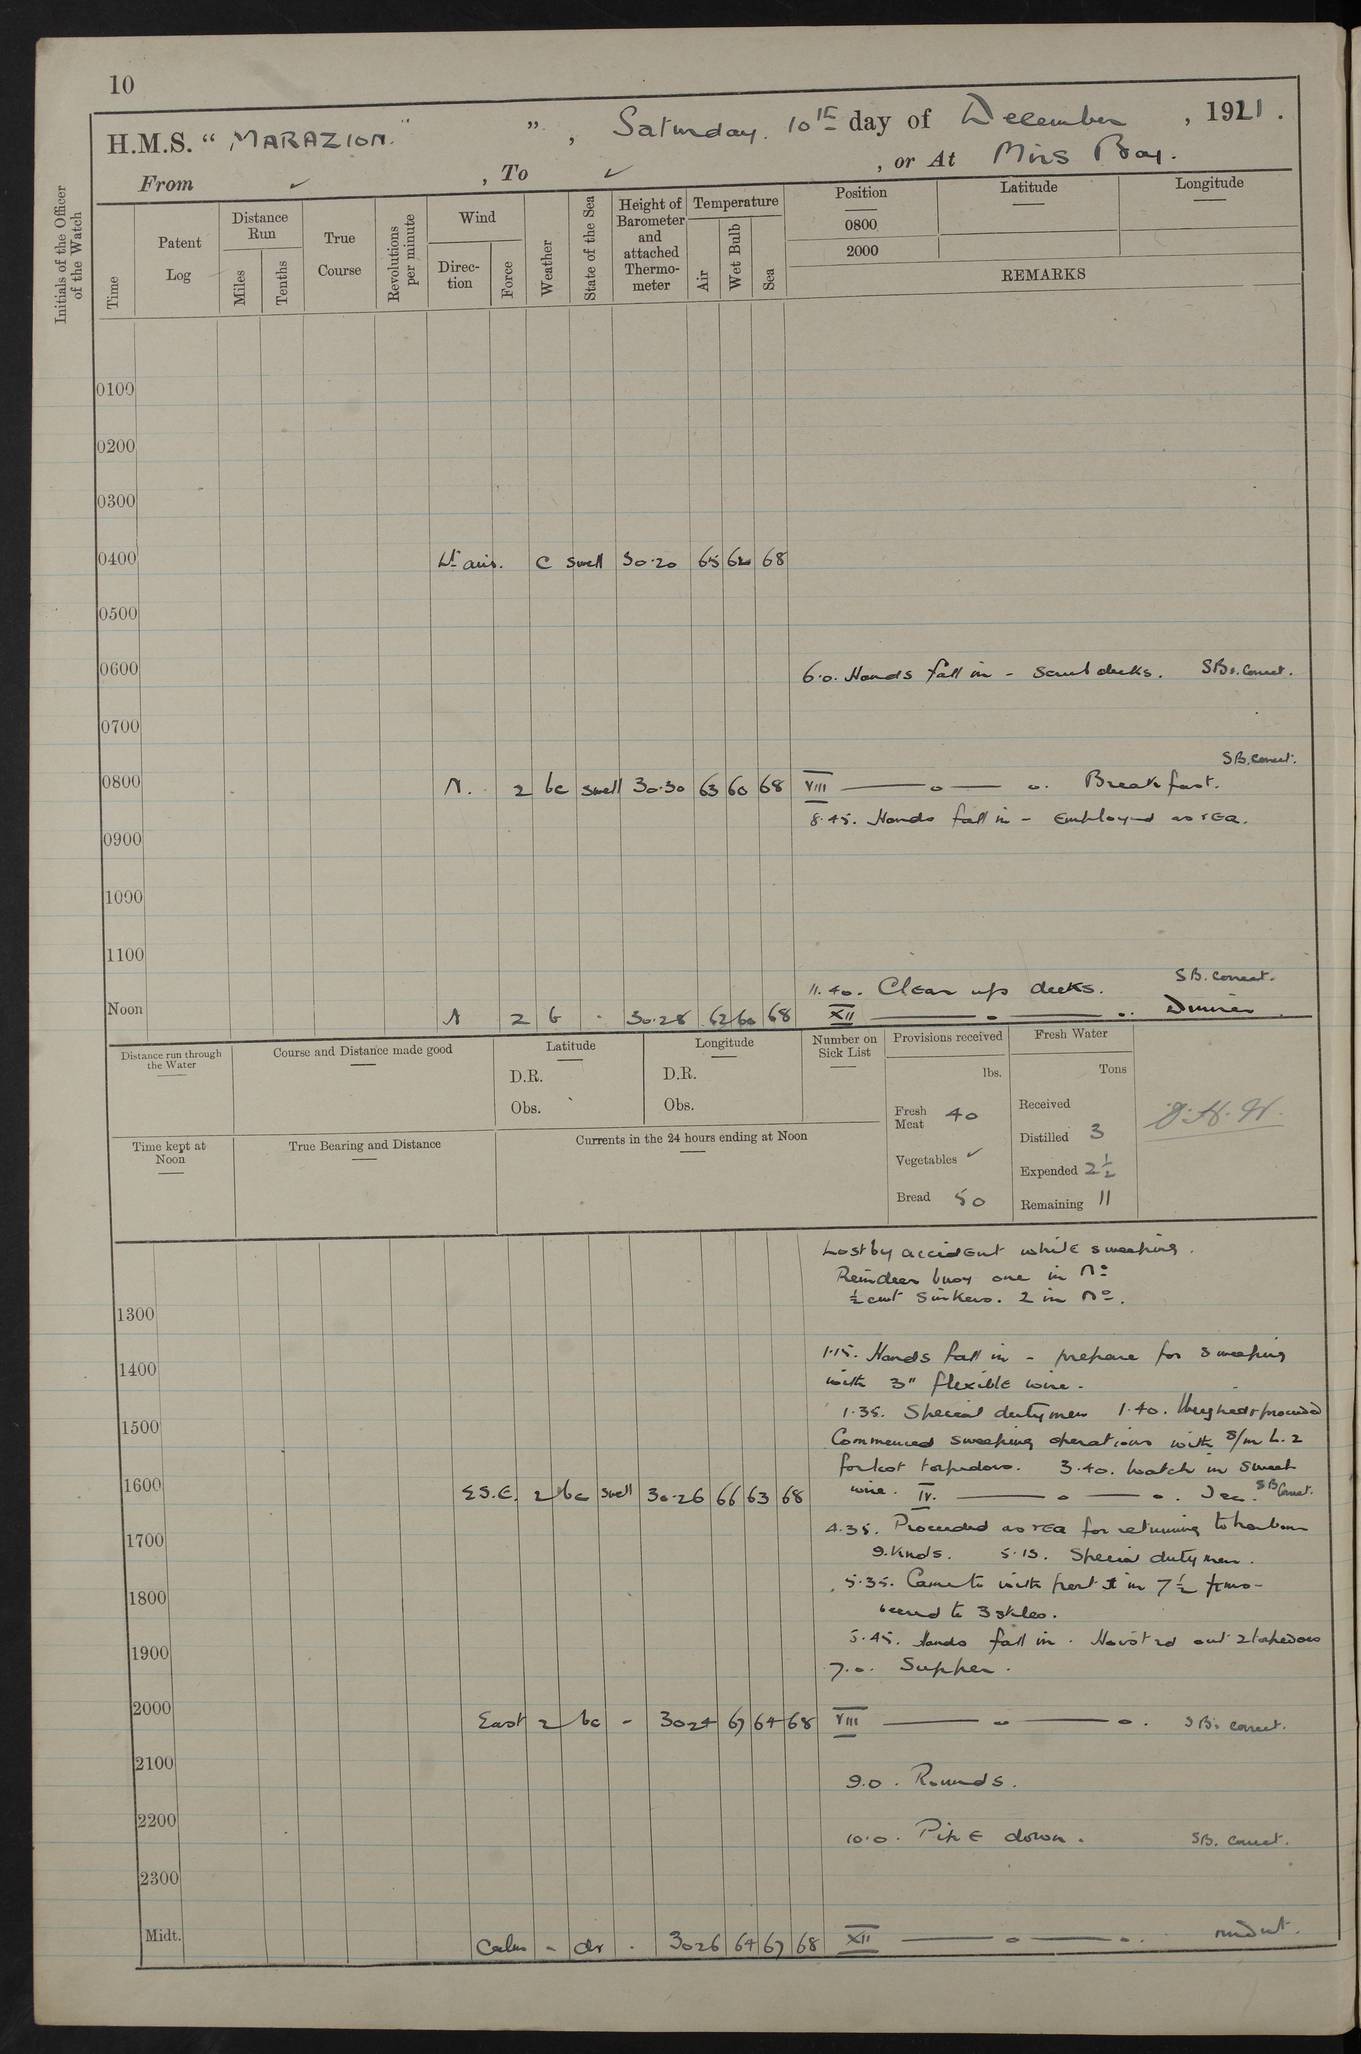 10
H.M.S. “ MARAZION. ” , Saturday. 10th day of December , 1921.
From ✓ , To ✓ , or At Mirs Bay.
Initials of the Officer of the Watch
Time
Patent Log
Distance Run
Miles
Tenths
True Course
Revolutions per minute
Wind
Direction
Force
Weather
State of the Sea
Height of Barometer and attached Thermometer
Temperature
Air
Wet Bulb
Sea
Position
Latitude
Longitude
0800
2000
REMARKS
0100
0200
0300
0400 Lt airs. c swell 30.20 65 62 68
0500
0600 6.0. Hands fall in - scrub decks. SBs. Correct.
0700
SB. Correct.
0800 N. 2 bc swell 30.30 63 60 68 VIII — o — o. Breakfast.
8.45. Hands fall in - Employed as req.
0900
1000
1100
11.40. Clear up decks. SB. Correct.
Noon N 2 b - 30.28 62 60 68 XII — o — o. Dinner
Distance run through the Water
Course and Distance made good
Latitude
D.R.
Obs.
Longitude
D.R.
Obs.
Number on Sick List
Provisions received
lbs.
Fresh Meat 40
Vegetables ✓
Bread 50
Fresh Water
Tons
Received
Distilled 3
Expended 2½
Remaining 11
Time kept at Noon
True Bearing and Distance
Currents in the 24 hours ending at Noon
Lost by accident while sweeping.
Reindeer buoy one in No
½ cwt Sinkers. 2 in No.
1300
1.15. Hands fall in - prepare for sweeping
1400
with 3" flexible wire.
1.35. Special dutymen 1.40. Weighed & proceeded
1500
Commenced sweeping operations with S/m L.2
for lost torpedoes. 3.40. Watch in sweep
1600 E.S.E. 2 bc swell 30.26 66 63 68 wire. IV. — o — o. SB Correct.
4.35. Proceeded as req for returning to harbour
1700
9. knots. 5.15. Special dutymen.
5.35. Came to with port ⚓ in 7½ fms-
1800
veered to 3 shkles.
5.45. Hands fall in. Hoisted out 2 torpedoes
1900
7.0. Supper.
2000 East 2 bc - 3024 67 64 68 VIII — o — o. SBs correct.
2100
9.0. Rounds.
2200
10.0. Pipe down. SB. Correct.
2300
Midt. Calm - - 3026 64 67 68 XII — o — o. midnt.